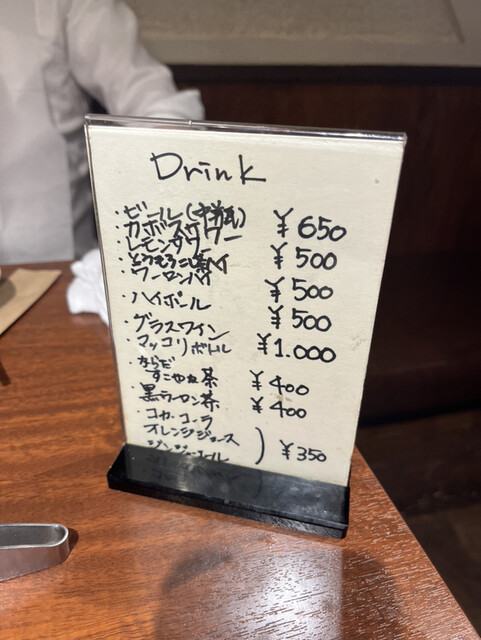 Drink
・ビール(中瓶) ¥650
・カボスサワー
・レモンサワー ¥500
・とうもろこし茶ハイ
・ウーロンハイ ¥500
・ハイボール
¥500
・グラスワイン
・マッコリボトル ¥1.000
からだ
すこやか茶 ¥400
・黒ウーロン茶 ¥400
・コカ・コーラ
オレンジジュース
ジンジャーエール ) ¥350